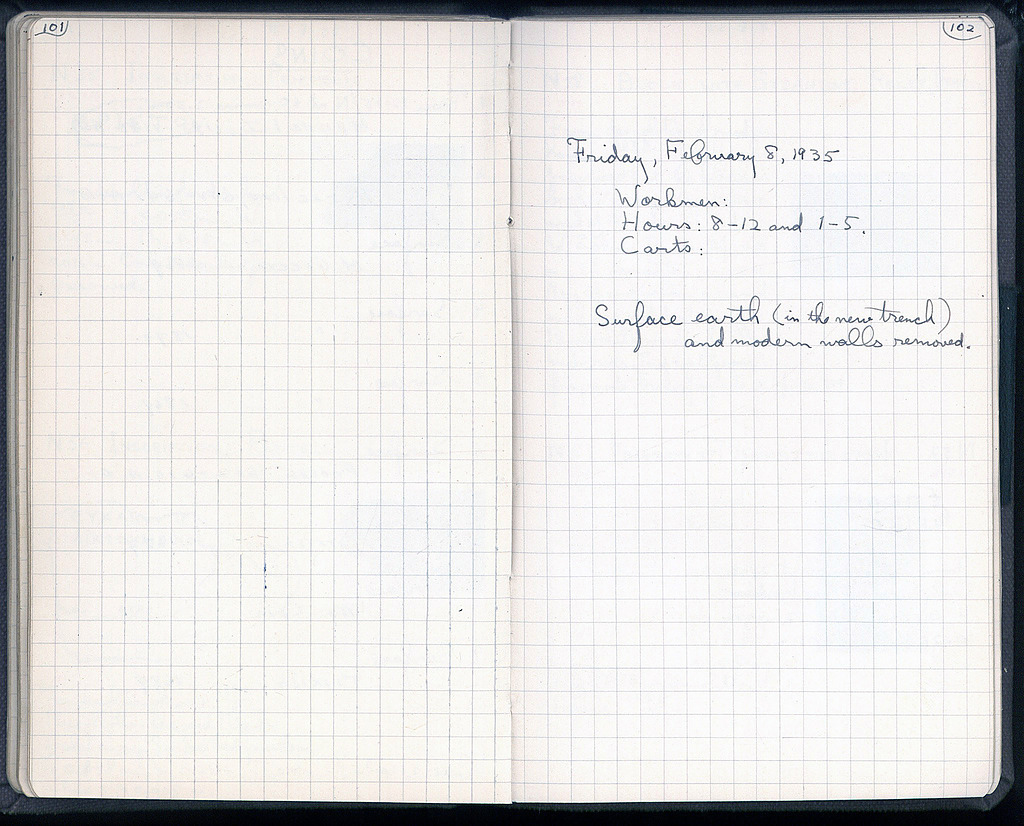 101
102
Friday, February 8, 1935
Workmen:
Hours: 8-12 and 1-5.
Carts:
Surface earth (in the new trench)
and modern walls removed.